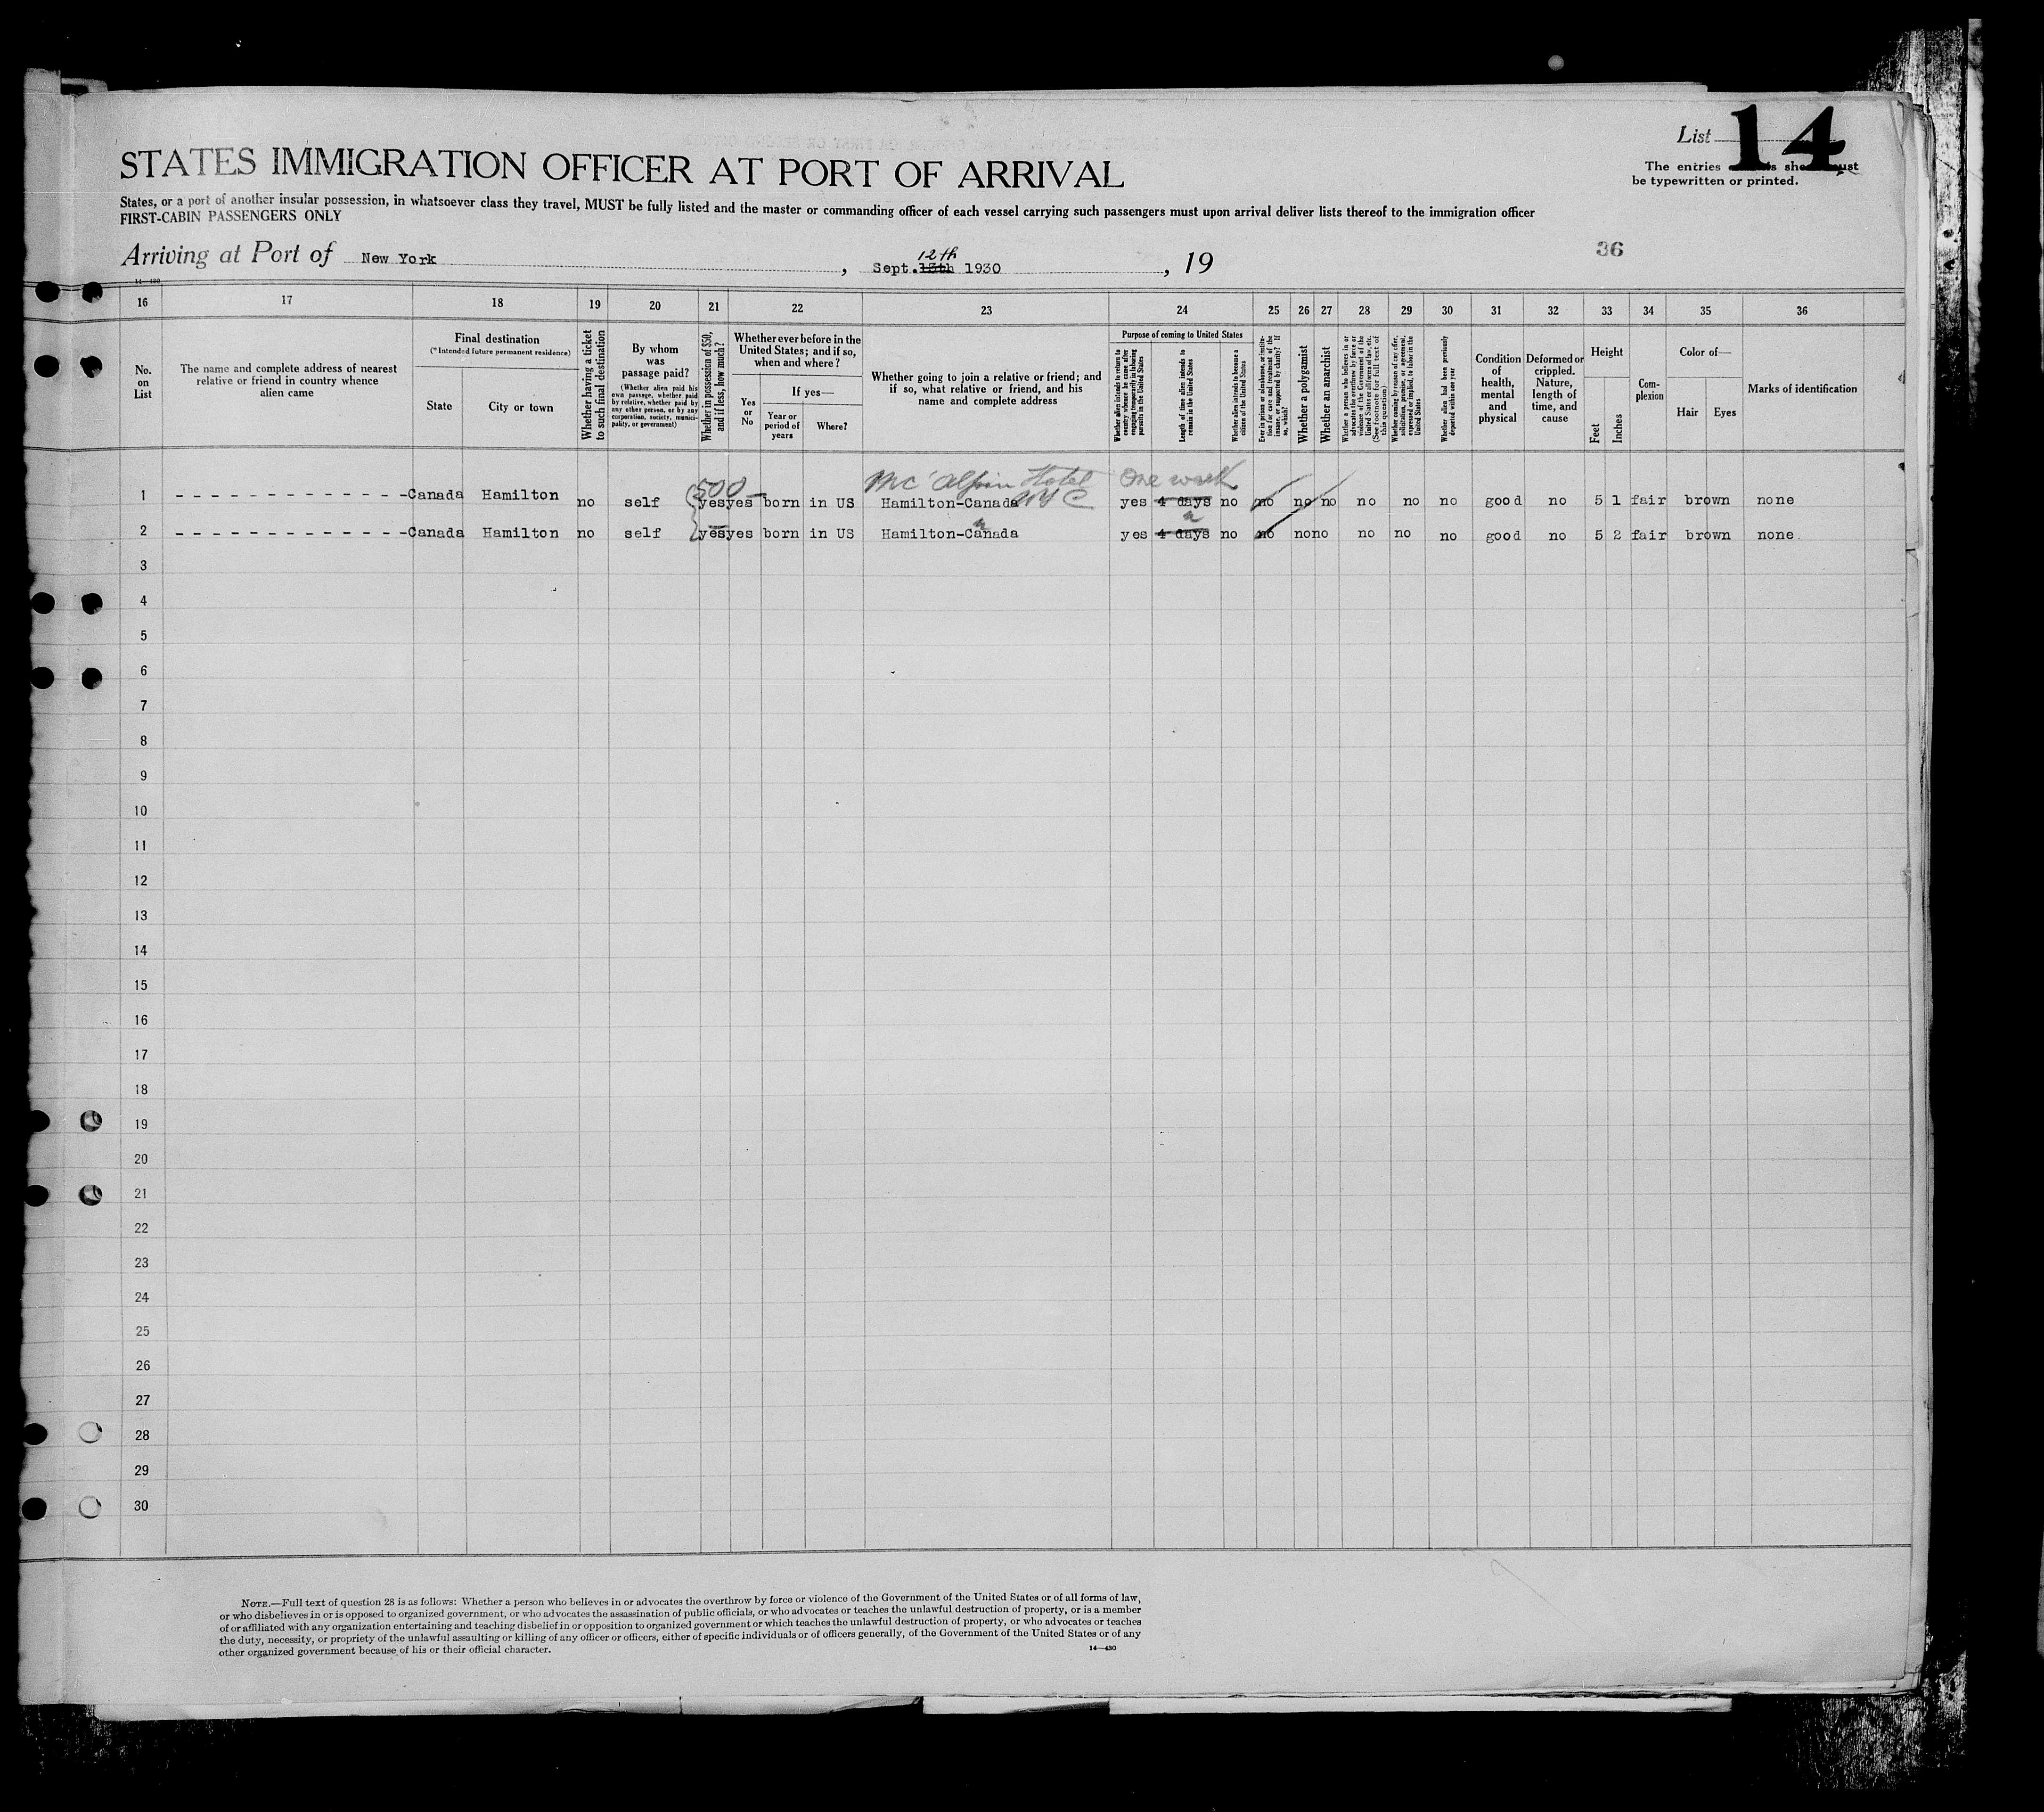 List 14
The entries
be typewritten or printed.
STATES IMMIGRATION OFFICER AT PORT OF ARRIVAL
States, or a port of another insular possession, in whatsoever class they travel, MUST be fully listed and the master or commanding officer of each vessel carrying such passengers must upon arrival deliver lists thereof to the immigration officer
FIRST-CABIN PASSENGERS ONLY
36
Arriving at Port of New York, Sept. 13th 12th 1930, 19
14—430
16 17 18 19 20 21 22 23 24 25 26 27 28 29 30 31 32 33 34 35 36
No. on List
The name and complete address of nearest relative or friend in country whence alien came
Final destination
(*Intended future permanent residence)
State
City or town
Whether having a ticket to such final destination
By whom was passage paid?
(Whether alien paid his own passage, whether paid by relative, whether paid by any other person, or by any corporation, society, municipality, or government)
Whether in possession of $50, and if less, how much?
Whether ever before in the United States; and if so, when and where?
Yes or No
If yes—
Year or period of years
Where?
Whether going to join a relative or friend; and if so, what relative or friend, and his name and complete address
Purpose of coming to United States
Whether alien intends to return to country whence he came after engaging temporarily in laboring pursuits in the United States
Length of time alien intends to remain in the United States
Whether alien intends to become a citizen of the United States
Ever in prison or almshouse, or institution for care and treatment of the insane, or supported by charity? If so, which?
Whether a polygamist
Whether an anarchist
Whether a person who believes in or advocates the overthrow by force or violence of the Government of the United States or all forms of law, etc. (See footnote for full text of this question)
Whether coming by reason of any offer, solicitation, promise, or agreement, expressed or implied, to labor in the United States
Whether alien had been previously deported within one year
Condition of health, mental and physical
Deformed or crippled. Nature, length of time, and cause
Height
Feet
Inches
Complexion
Color of—
Hair
Eyes
Marks of identification
500— Mc Alpin Hotel NYC One week
1 - - - - - - - - - - - - - -Canada Hamilton no self yes yes born in US Hamilton-Canada yes 4 days no no no no no no no good no 5 1 fair brown none
2 - - - - - - - - - - - - - -Canada Hamilton no self yes yes born in US Hamilton-Canada yes 4 days no no no no no no no good no 5 2 fair brown none
3
4
5
6
7
8
9
10
11
12
13
14
15
16
17
18
19
20
21
22
23
24
25
26
27
28
29
30
NOTE.—Full text of question 28 is as follows: Whether a person who believes in or advocates the overthrow by force or violence of the Government of the United States or of all forms of law,
or who disbelieves in or is opposed to organized government, or who advocates the assassination of public officials, or who advocates or teaches the unlawful destruction of property, or is a member
of or affiliated with any organization entertaining and teaching disbelief in or opposition to organized government or which teaches the unlawful destruction of property, or who advocates or teaches
the duty, necessity, or propriety of the unlawful assaulting or killing of any officer or officers, either of specific individuals or of officers generally, of the Government of the United States or of any
other organized government because of his or their official character.
14—430